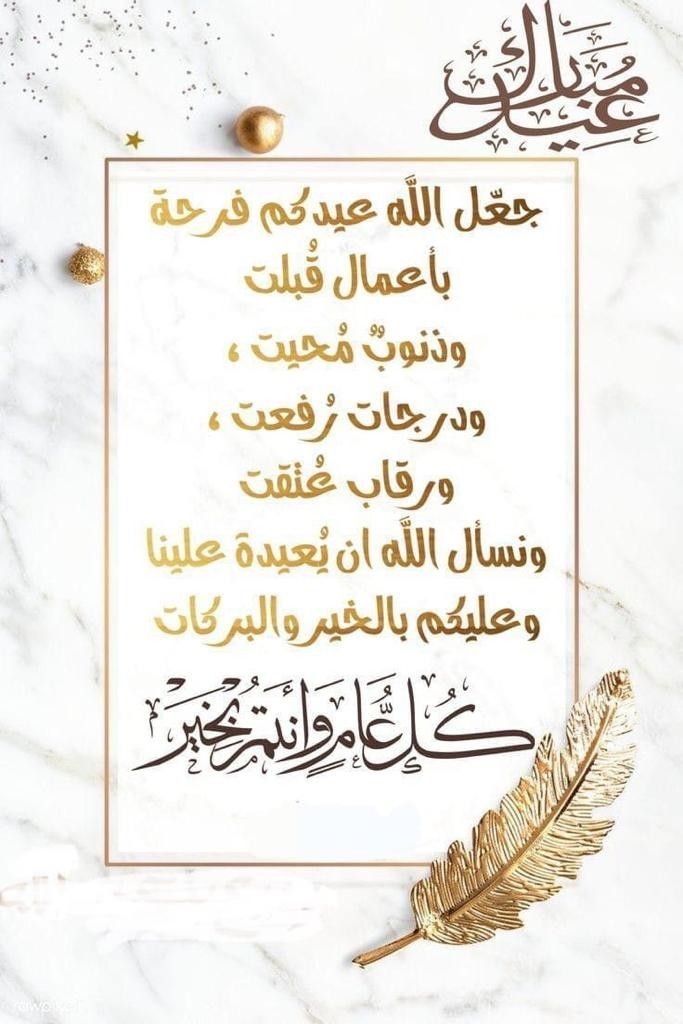 عيد مبارك
جعّل اللَّه عيدكم فرحة
بأعمال قُبلت
وذنوبٌ مُحيت ،
ودرجات رُفعت ،
ورقاب عُتقت
ونسأل اللَّه ان يُعيدة علينا
وعليكم بالخير والبركات
كُل عَّامٍ وَأَنتُم بُخَيْر
rawpixel